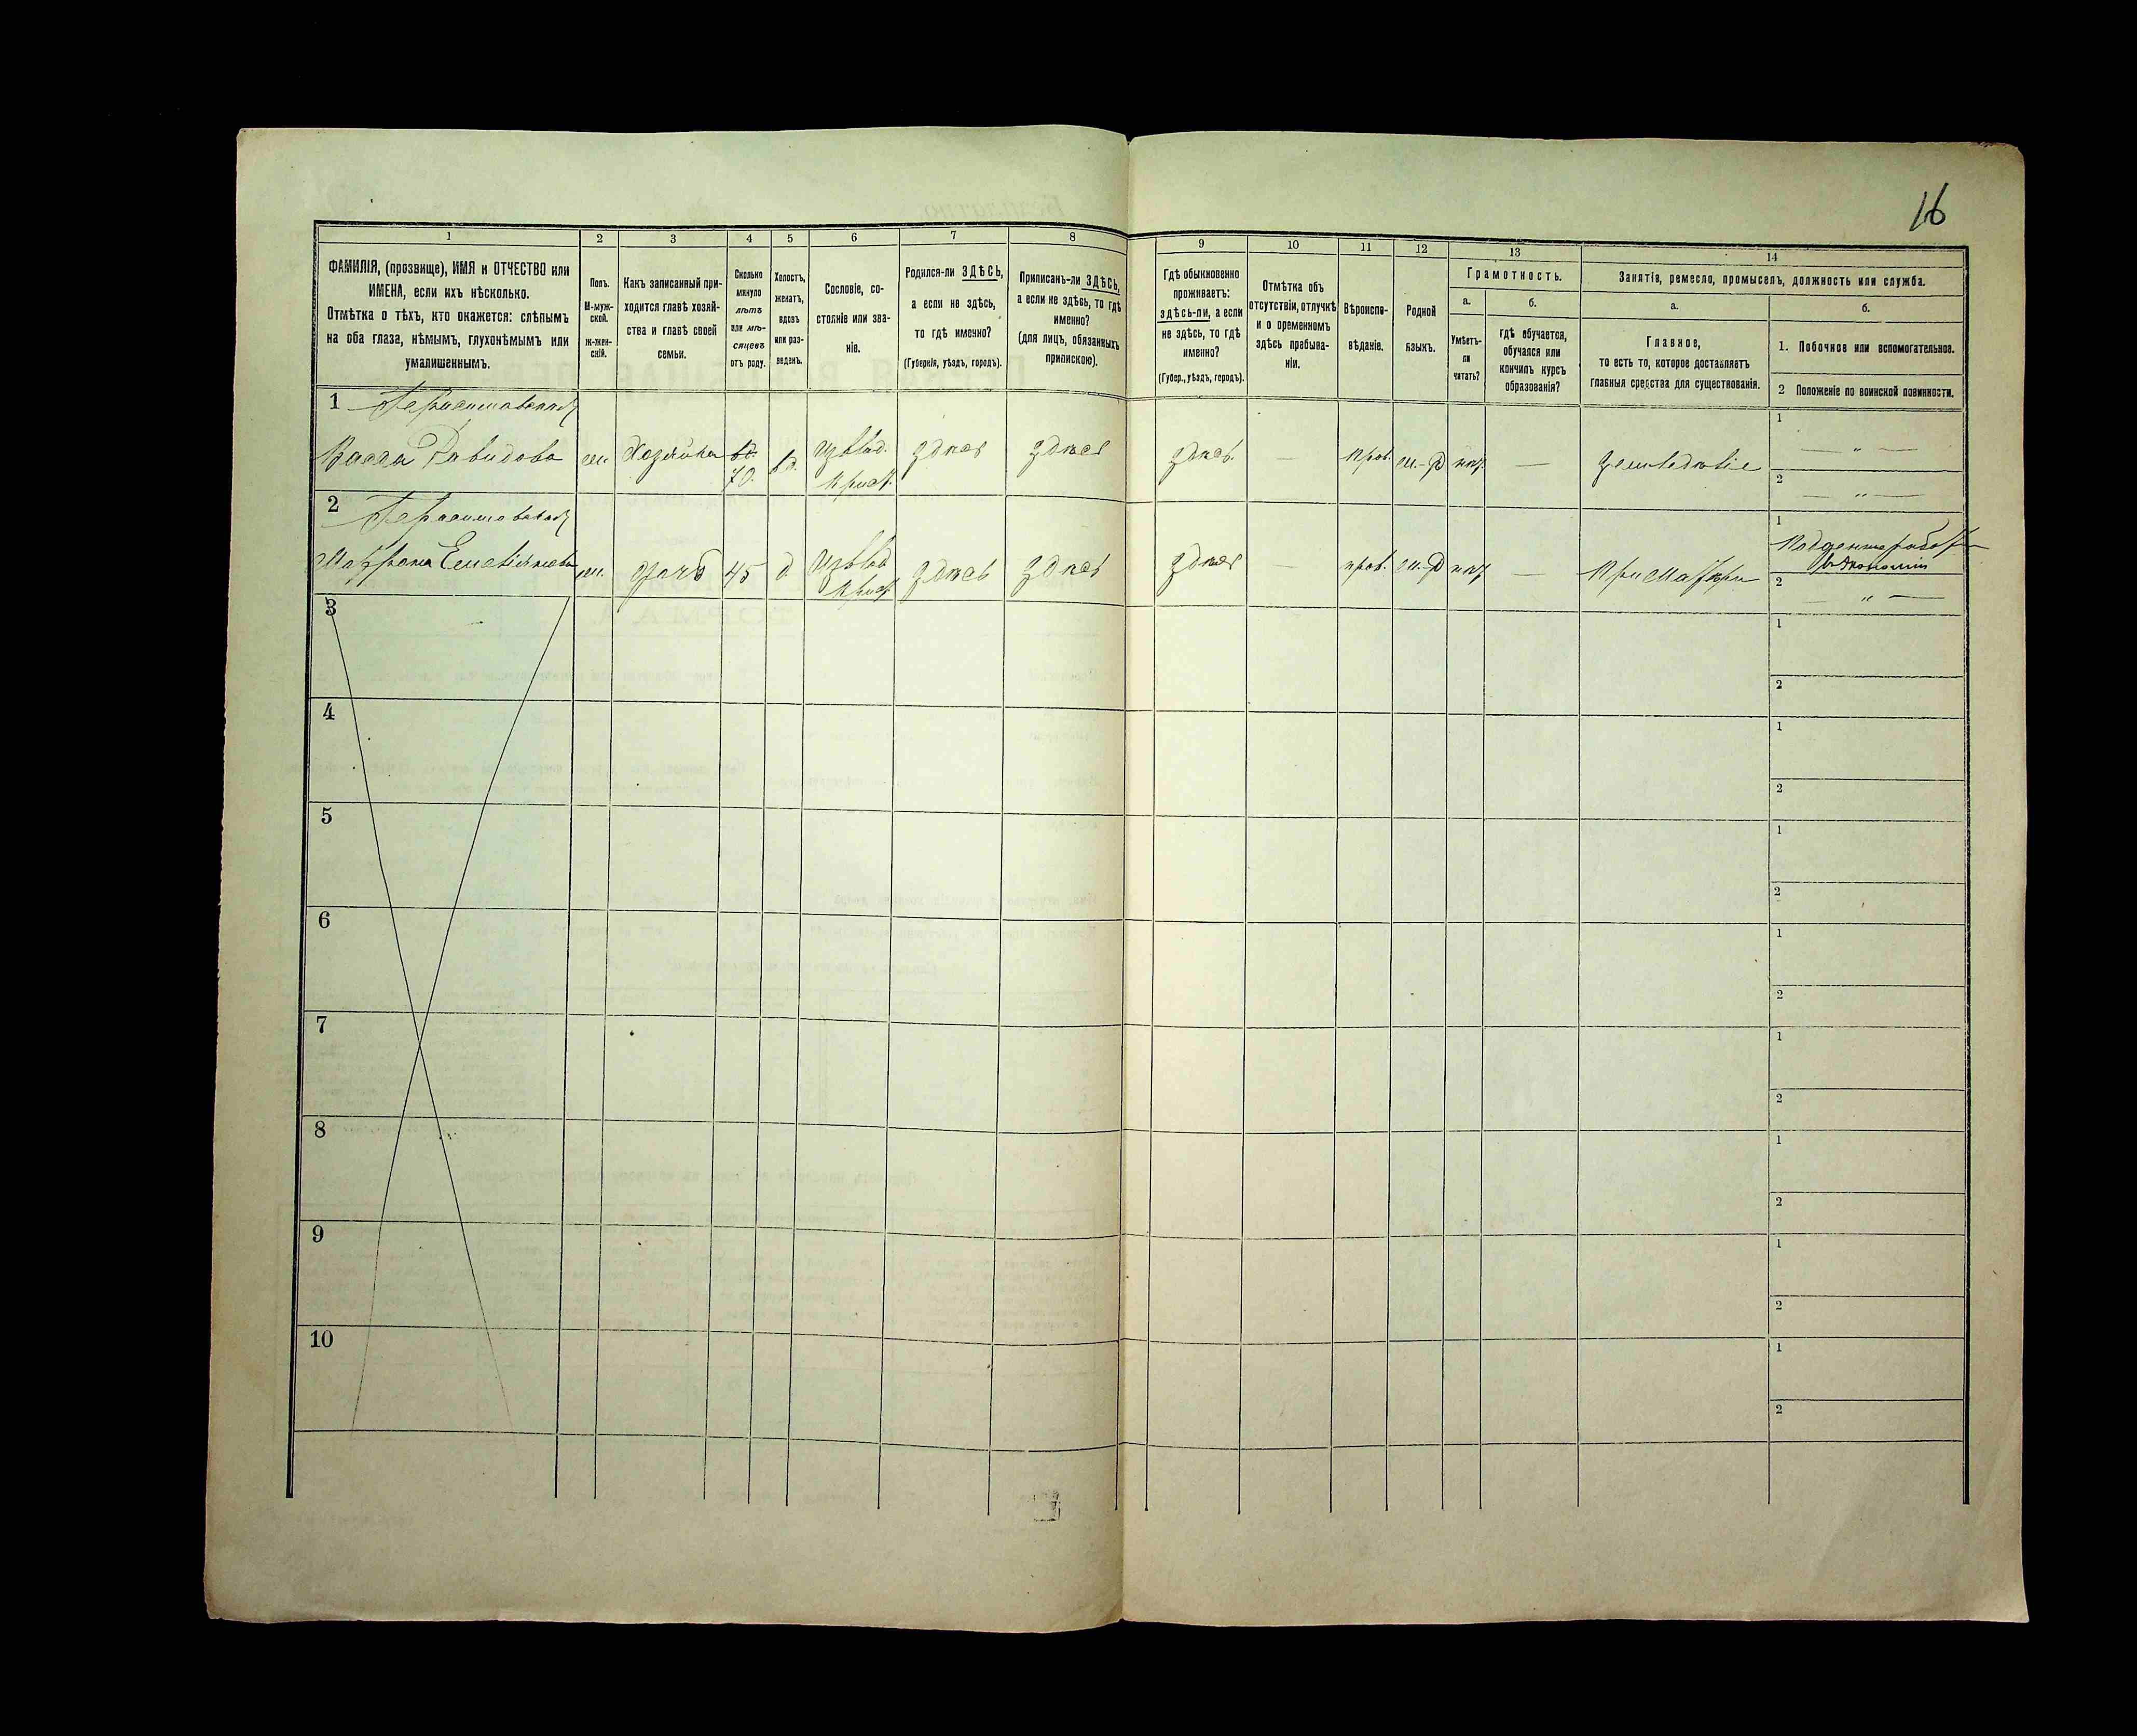 16
1
2
3
4
5
6
7
8
9
10
11
12
13
14
ФАМИЛІЯ, (прозвище), ИМЯ и ОТЧЕСТВО или
ИМЕНА, если ихъ нѣсколько.
Отмѣтка о тѣхъ, кто окажется: слѣпымъ
на оба глаза, нѣмымъ, глухонѣмымъ или
умалишеннымъ.
Полъ.
М-муж-
ской.
Ж-жен-
скій.
Какъ записанный при-
ходится главѣ хозяй-
ства и главѣ своей
семьи.
Сколько
минуло
лѣтъ
или мѣ-
сяцевъ
отъ роду.
Холостъ,
женатъ,
вдовъ
или раз-
веденъ.
Сословіе, со-
стояніе или зва-
ніе.
Родился-ли ЗДѢСЬ,
а если не здѣсь,
то гдѣ именно?
(Губернія, уѣздъ, городъ).
Приписанъ-ли ЗДѢСЬ,
а если не здѣсь, то гдѣ
именно?
(для лицъ, обязанныхъ
припискою).
Гдѣ обыкновенно
проживаетъ:
здѣсь-ли, а если
не здѣсь, то гдѣ
именно?
(Губер., уѣздъ, городъ).
Отмѣтка объ
отсутствіи, отлучкѣ
и о временномъ
здѣсь пребыва-
ніи.
Вѣроиспо-
вѣданіе.
Родной
языкъ.
Грамотность.
а.
б.
Умѣетъ-
ли
читать?
гдѣ обучается,
обучался или
кончилъ курсъ
образованія?
Занятія, ремесло, промыселъ, должность или служба.
а.
б.
Главное,
то есть то, которое доставляетъ
главныя средства для существованія.
1. Побочное или вспомогательное.
2 Положеніе по воинской повинности.
1
Васса Давидова
Хозяйка
70.
вд.
здѣсь
здѣсь
здѣсь.
—
прав.
—
Земледѣліе
1
— " —
2
— " —
2
дочь
45
д.
здѣсь
здѣсь
здѣсь
—
прав.
—
При Матери
1
2
— " —
3
1
2
4
1
2
5
1
2
6
1
2
7
1
2
8
1
2
9
1
2
10
1
2